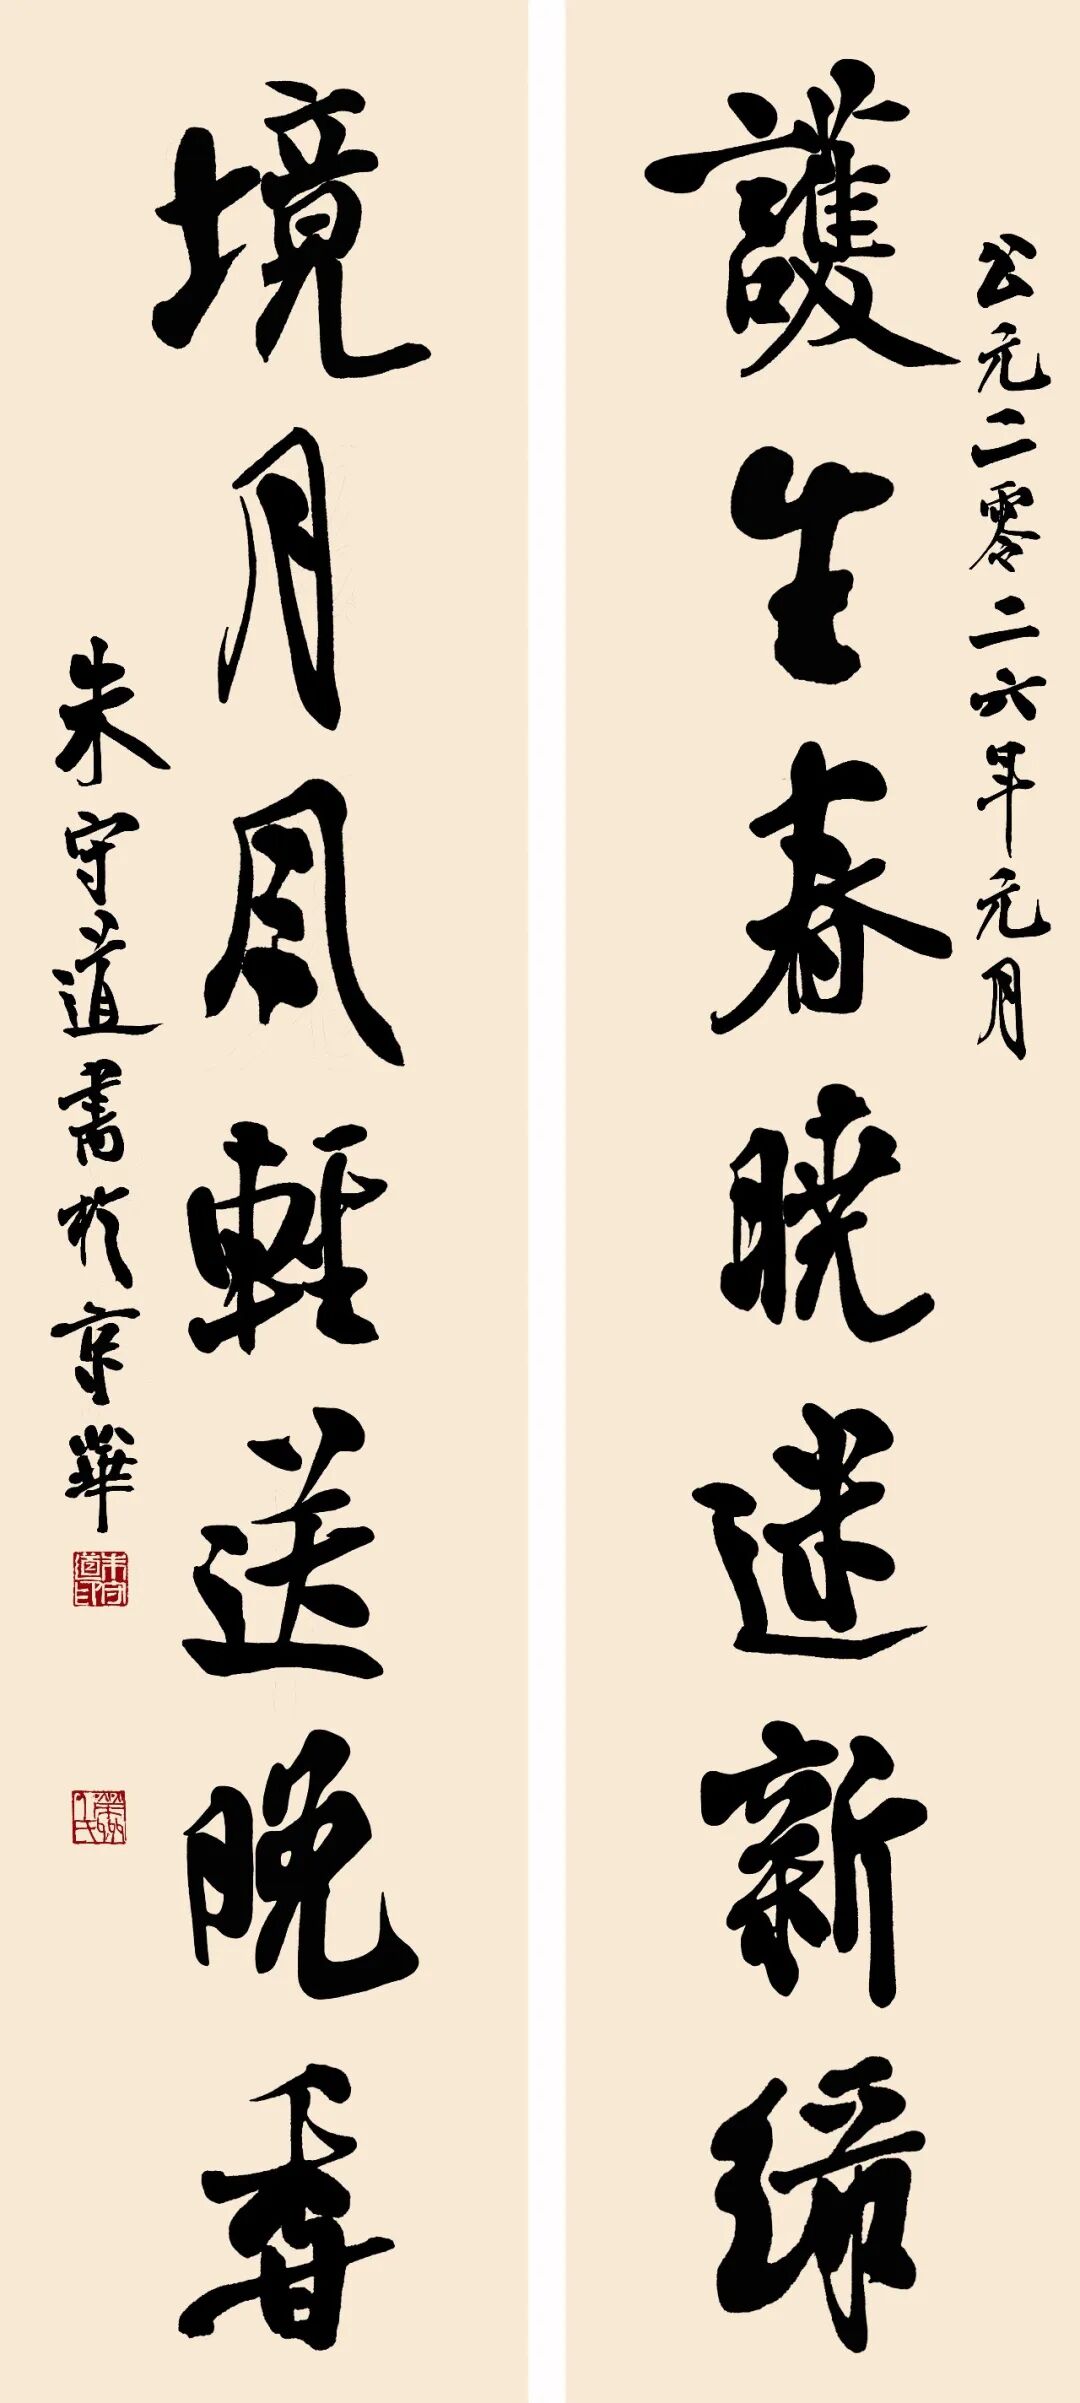 公元二零二六年元月
護生春曉迷新締
境月風輕送晚香
朱守道書於京華
朱守道印